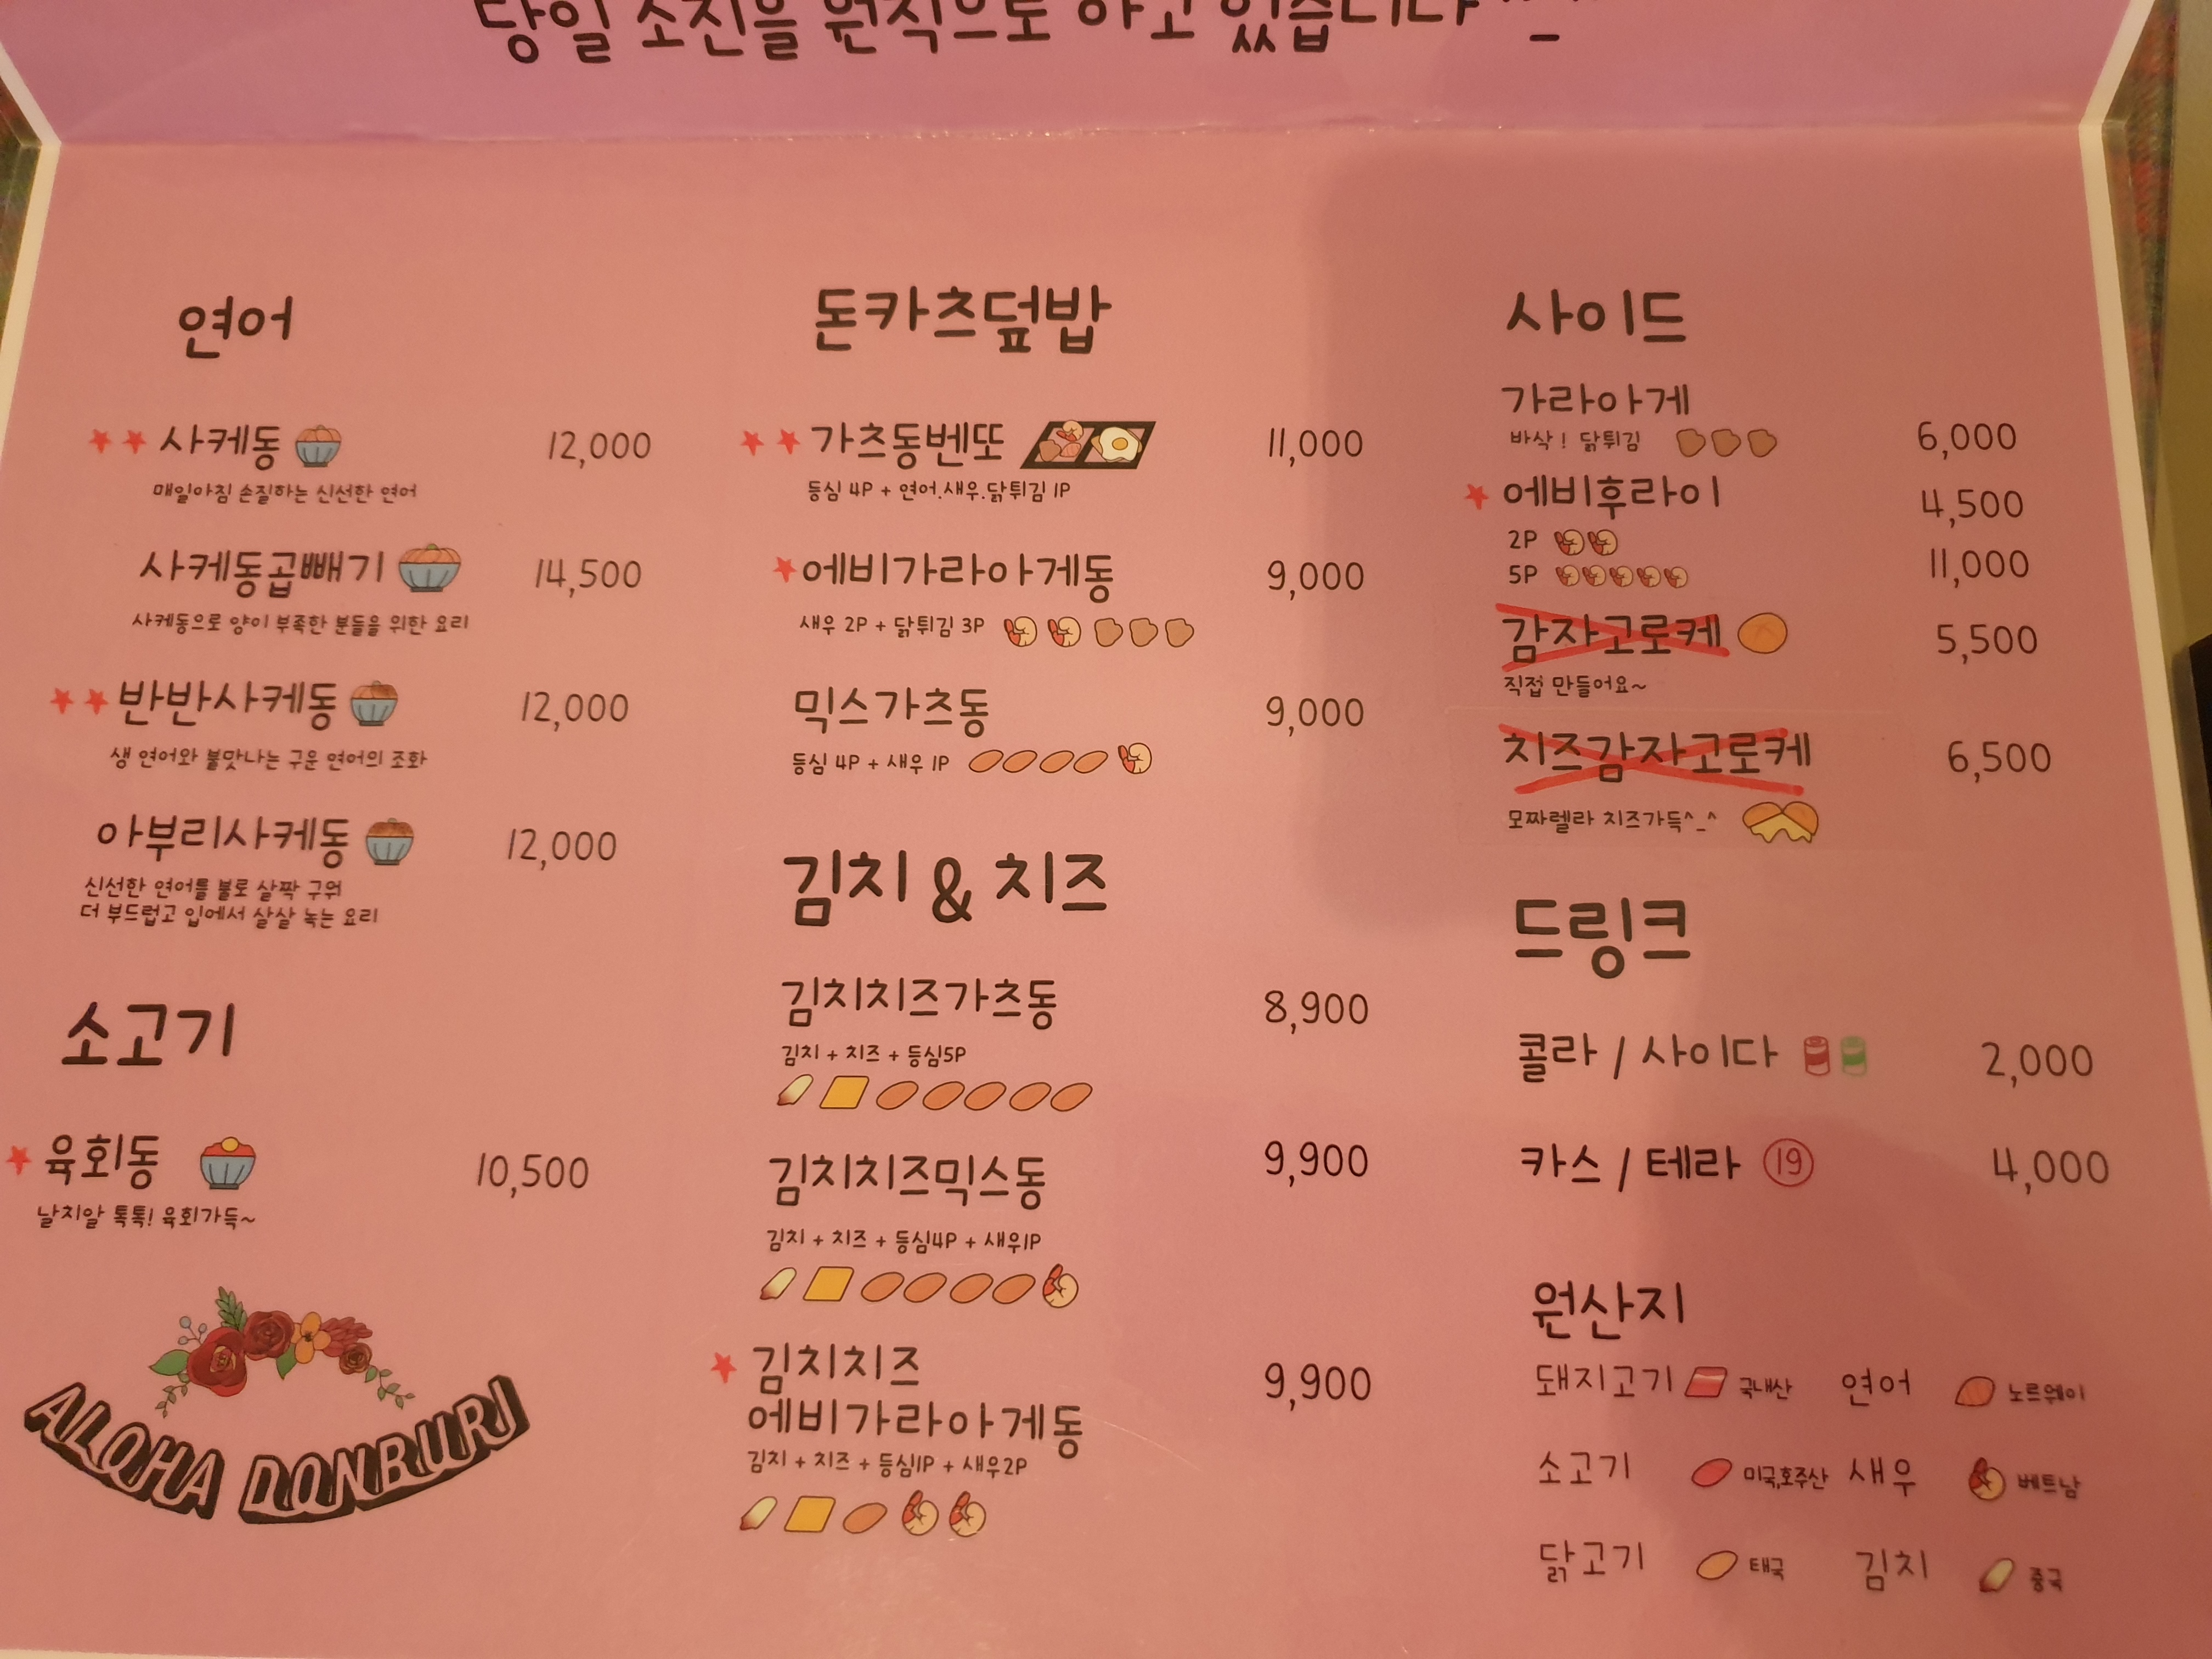 당일 소진을 원칙으로 하고 있습니다 ^_^
연어
사케동 12,000
매일아침 손질하는 신선한 연어
사케동곱빼기 14,500
사케동으로 양이 부족한 분들을 위한 요리
반반사케동 12,000
생 연어와 불맛나는 구운 연어의 조화
아부리사케동 12,000
신선한 연어를 불로 살짝 구워
더 부드럽고 입에서 살살 녹는 요리
소고기
육회동 10,500
날치알 톡톡! 육회가득~
ALOHA DONBURI
돈카츠덮밥
가츠동벤또 11,000
등심 4P + 연어.새우.닭튀김 1P
에비가라아게동 9,000
새우 2P + 닭튀김 3P
믹스가츠동 9,000
등심 4P + 새우 1P
김치 & 치즈
김치치즈가츠동 8,900
김치 + 치즈 + 등심5P
김치치즈믹스동 9,900
김치 + 치즈 + 등심4P + 새우1P
김치치즈
에비가라아게동 9,900
김치 + 치즈 + 등심1P + 새우2P
사이드
가라아게 6,000
바삭! 닭튀김
에비후라이 4,500
2P
5P 11,000
감자고로케 5,500
직접 만들어요~
치즈감자고로케 6,500
모짜렐라 치즈가득^_^
드링크
콜라 / 사이다 2,000
카스 / 테라 19 4,000
원산지
돼지고기 국내산 연어 노르웨이
소고기 미국,호주산 새우 베트남
닭고기 태국 김치 중국